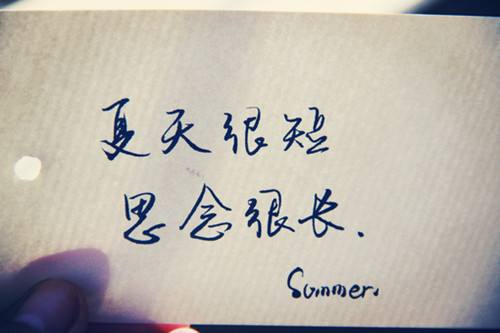 夏天很短
思念很长.
Summer.